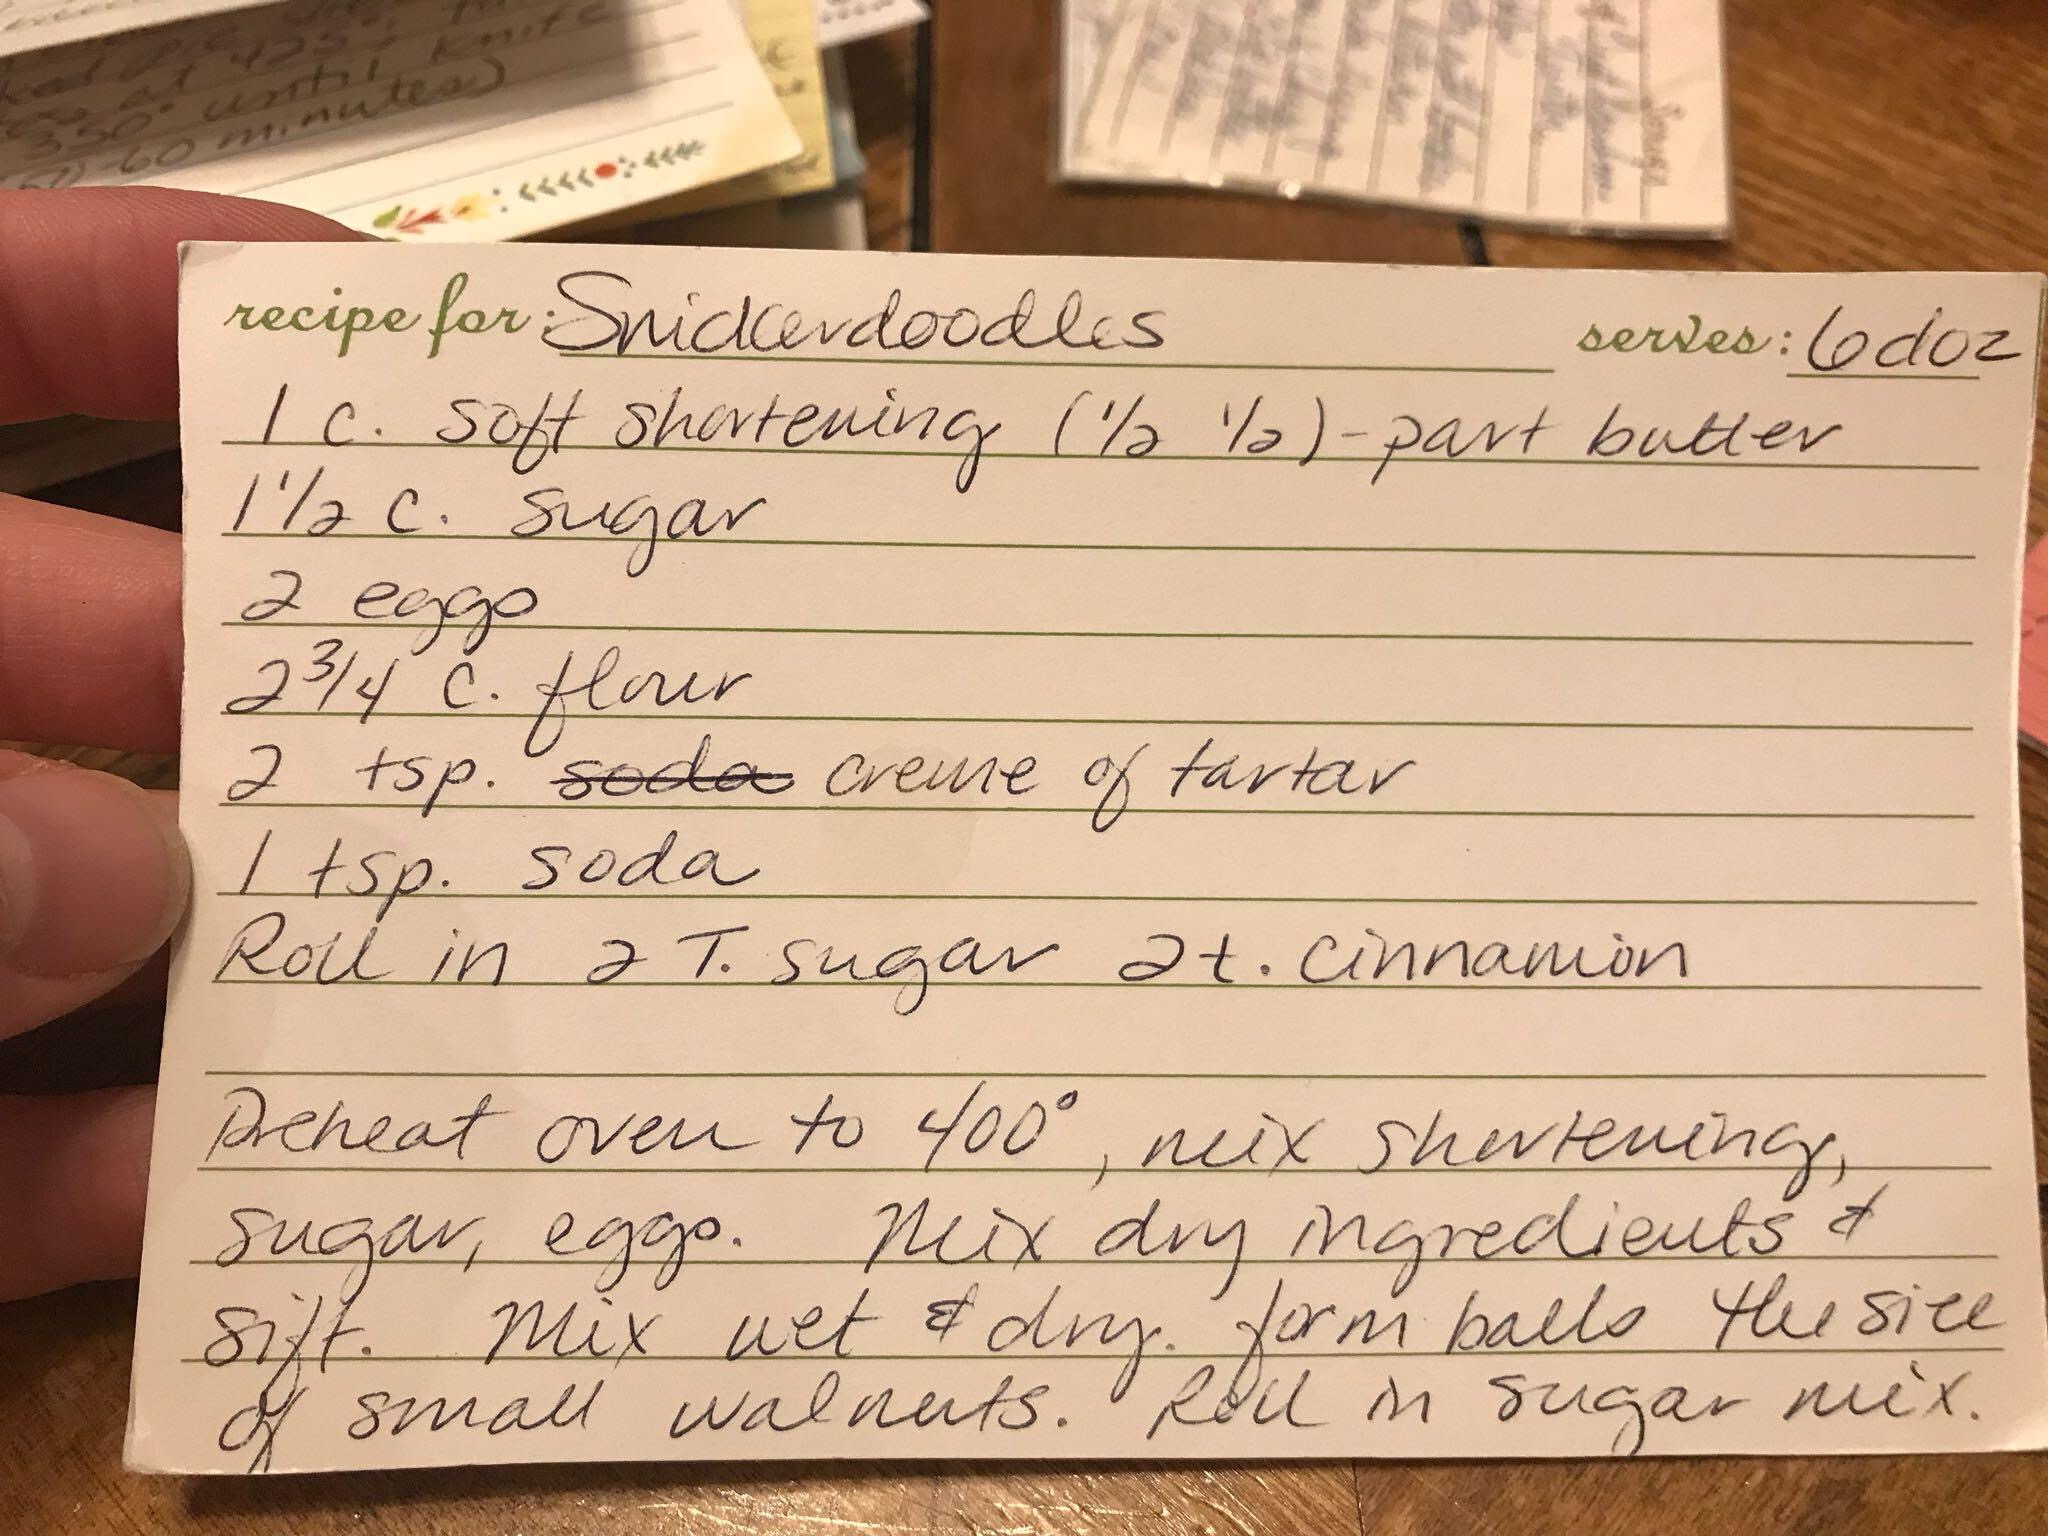 ked pie
at 425°,
350° until knife
50-60 minutes)
recipe for: Snickerdoodles serves: 6 doz
1 c. soft shortening (1/2 1/2) - part butter
1 1/2 c. sugar
2 eggs
2 3/4 c. flour
2 tsp. soda creme of tartar
1 tsp. soda
Roll in 2 T. sugar 2 t. cinnamon
Preheat oven to 400°, mix shortening,
sugar, eggs. Mix dry ingredients &
sift. Mix wet & dry. form balls the size
of small walnuts. Roll in sugar mix.